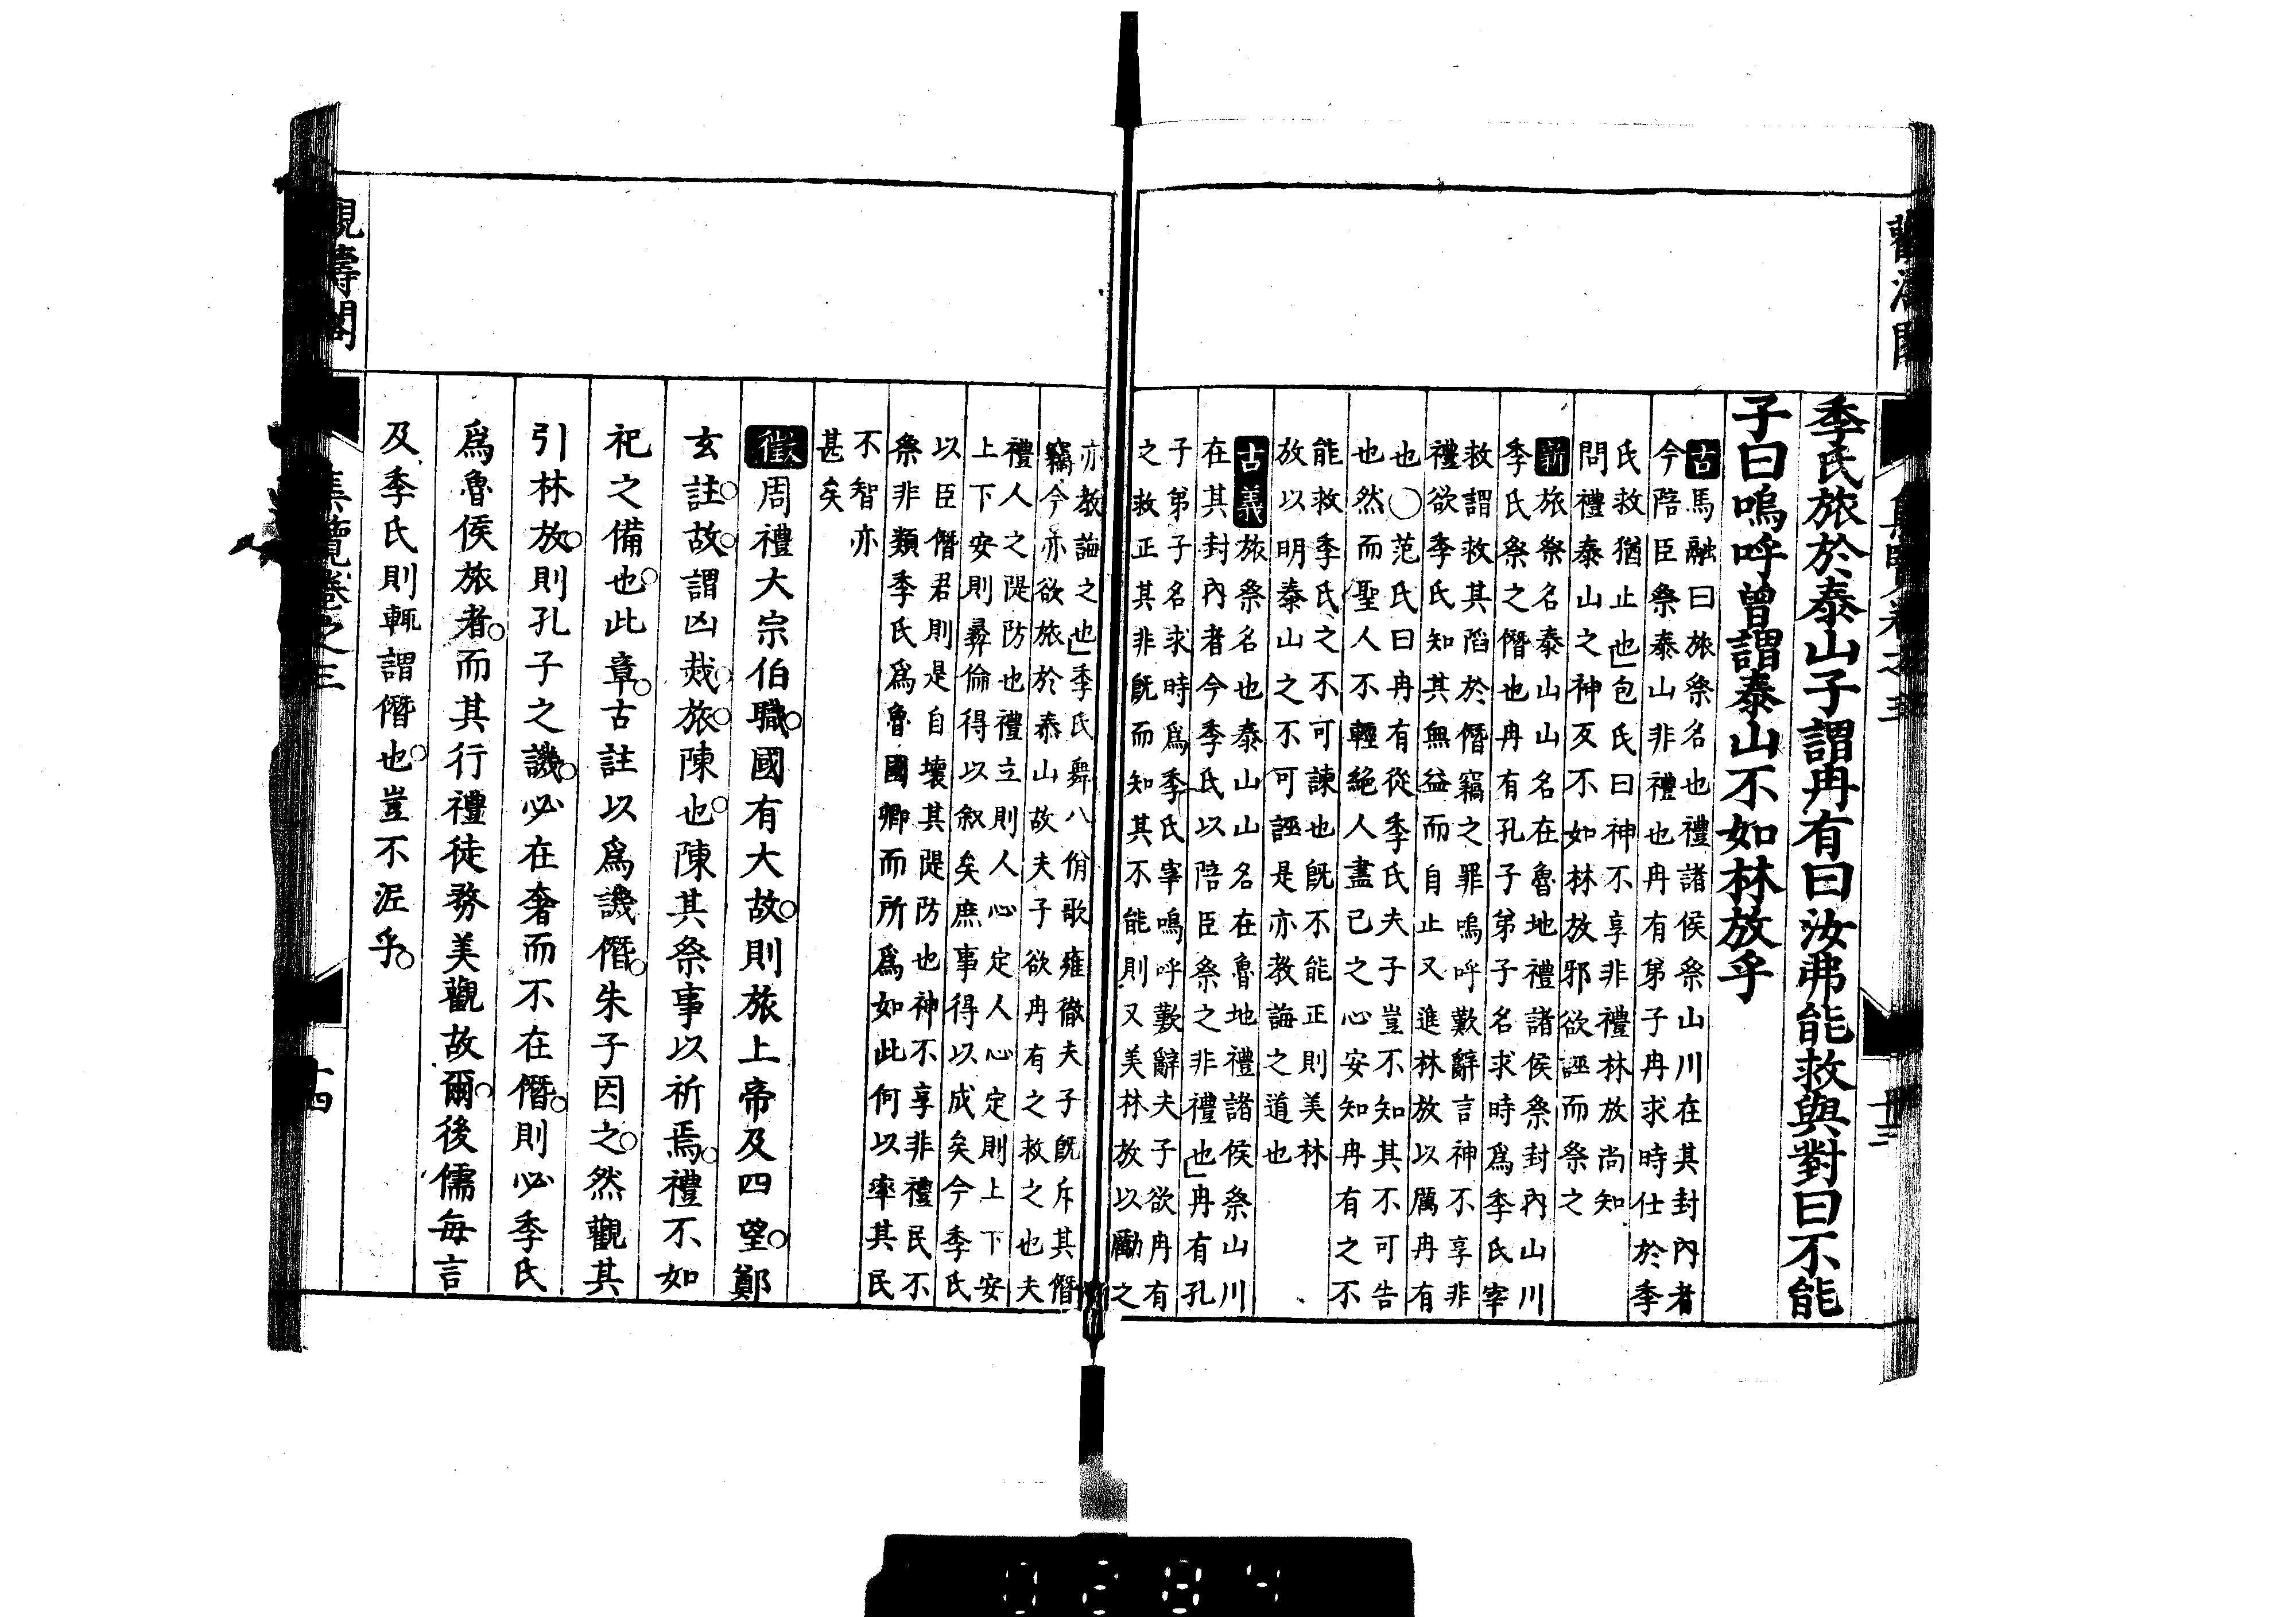 季氏旅於泰山子謂冉有曰汝弗能救與對曰不能
子曰嗚呼曾謂泰山不如林放乎
古馬融曰旅祭名也禮諸侯祭山川在其封內者
今陪臣祭泰山非禮也冉有弟子冉求時仕於季
氏救猶止也」包氏曰神不享非禮林放尚知
問禮泰山之神反不如林放邪欲誣而祭之
新旅祭名泰山山名在魯地禮諸侯祭封內山川
季氏祭之僭也冉有孔子弟子名求時爲季氏宰
救謂救其陷於僭竊之罪嗚呼歎辭言神不享非
禮欲季氏知其無益而自止又進林放以厲冉有
也〇范氏曰冉有從季氏夫子豈不知其不可告
也然而聖人不輕絕人盡己之心安知冉有之不
能救季氏之不可諫也既不能正則美林
放以明泰山之不可誣是亦教誨之道也
古義旅祭名也泰山山名在魯地禮諸侯祭山川
在其封內者今季氏以陪臣祭之非禮也」冉有孔
子弟子名求時爲季氏宰嗚呼歎辭夫子欲冉有
之救正其非既而知其不能則又美林放以勵之
亦教誨之也」季氏舞八佾歌雍徹夫子既斥其僭
竊今亦欲旅於泰山故夫子欲冉有之救之也夫
禮人之隄防也禮立則人心定人心定則上下安
上下安則彝倫得以叙矣庶事得以成矣今季氏
以臣僭君則是自壞其隄防也神不享非禮民不
祭非類季氏爲魯國卿而所爲如此何以率其民
不智亦
甚矣
徵周禮大宗伯職。國有大故。則旅上帝及四望。鄭
玄註。故。謂凶烖。旅。陳也。陳其祭事以祈焉。禮不如
祀之備也。此章。古註以爲譏僭。朱子因之。然觀其
引林放。則孔子之譏。必在奢而不在僭。則必季氏
爲魯侯旅者。而其行禮徒務美觀故爾。後儒每言
及季氏則輒謂僭也。豈不泥乎。
觀濤閣
集覽卷之三
十四